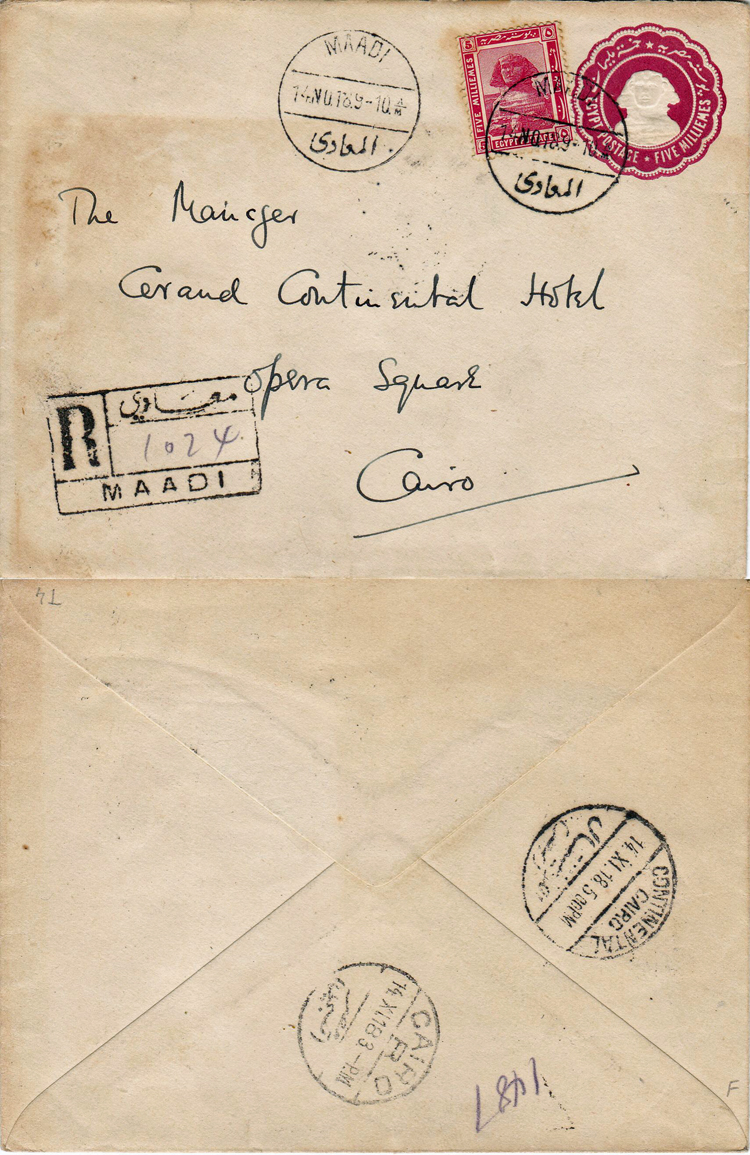 MAADI
14.NO.18.9-10.
المعادى
FIVE MILLIEMES
5
EGYPT POSTAGE
5
MAADI
14.NO.18.9-10.
المعادى
POSTAGE ★ FIVE MILLIEMES
The Manager
Grand Continental Hotel
Opera Square
Cairo
R
معادي
1024
MAADI
14
14.XI.18 5.00PM
CONTINENTAL
CAIRO
14.XI.18 3-PM
CAIRO
R
1487
F